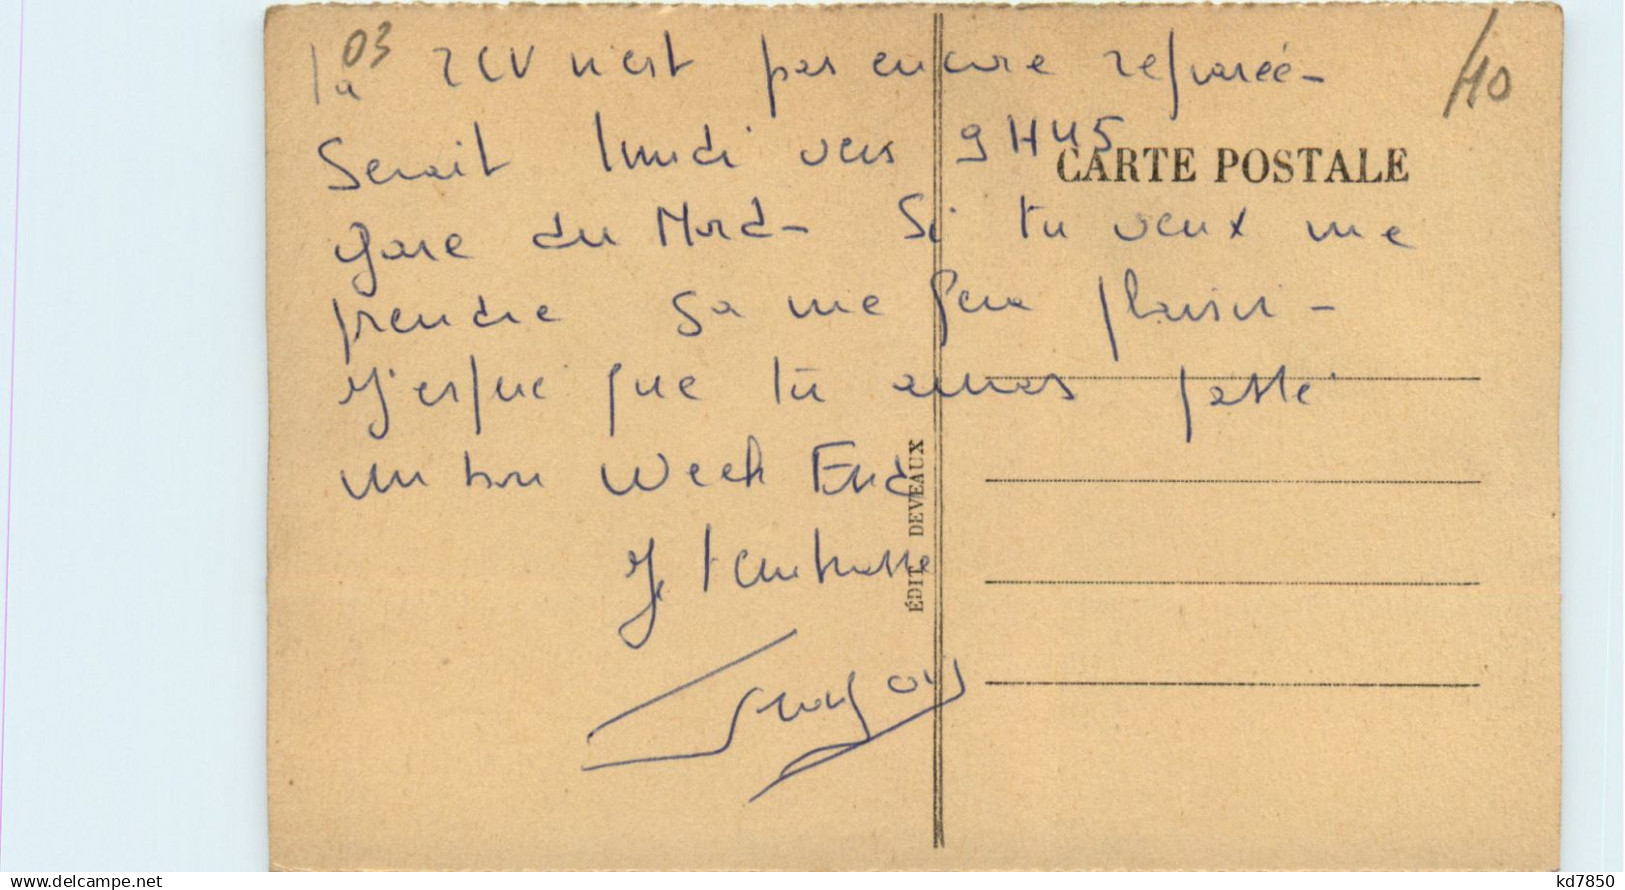 03
/40
la 2CV n'est pas encore reparée -
Serait lundi vers 9H45
CARTE POSTALE
gare du Nord - Si tu veux me
prendre sa me fera plaisir -
J'espere que tu auras passé
un bon Week End
Je t'embrasse
ÉDIT. DEVEAUX
www.delcampe.net
kd7850